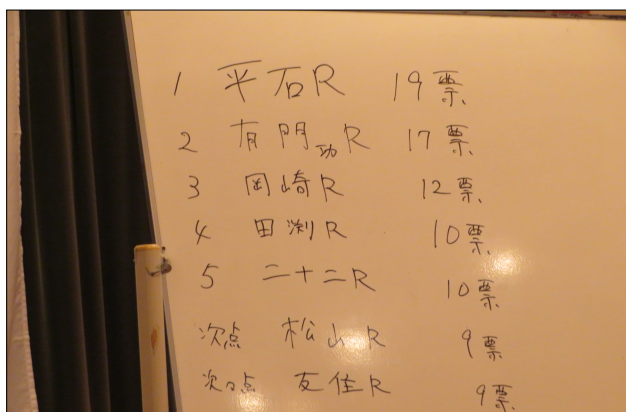 1 平石R 19票
2 有門功R 17票
3 岡崎R 12票
4 田渕R 10票
5 二十二R 10票
次点 松山R 9票
次々点 友住R 9票